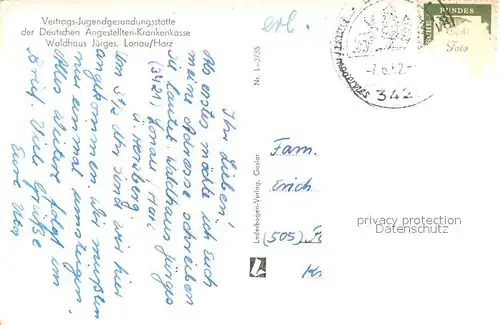 Vertrags-Jugendgesundungsstätte
der Deutschen Angestellten-Krankenkasse
Waldhaus Jürges, Lonau/Harz
erl.
Ihr Lieben!
Als erstes möchte ich Euch
meine Adresse schreiben
sie lautet: Waldhaus Jürges
(3421) Lonau/Harz
ü. Herzberg
Um 5½ Uhr sind wir hier
angekommen. Wir mußten
nur einmal umsteigen.
Alles Weitere folgt im
Brief. Viele Grüße
Eure
Nr. L-3/35
Lederbogen-Verlag, Goslar
342
Fam.
Erich
(505)
privacy protection
Datenschutz